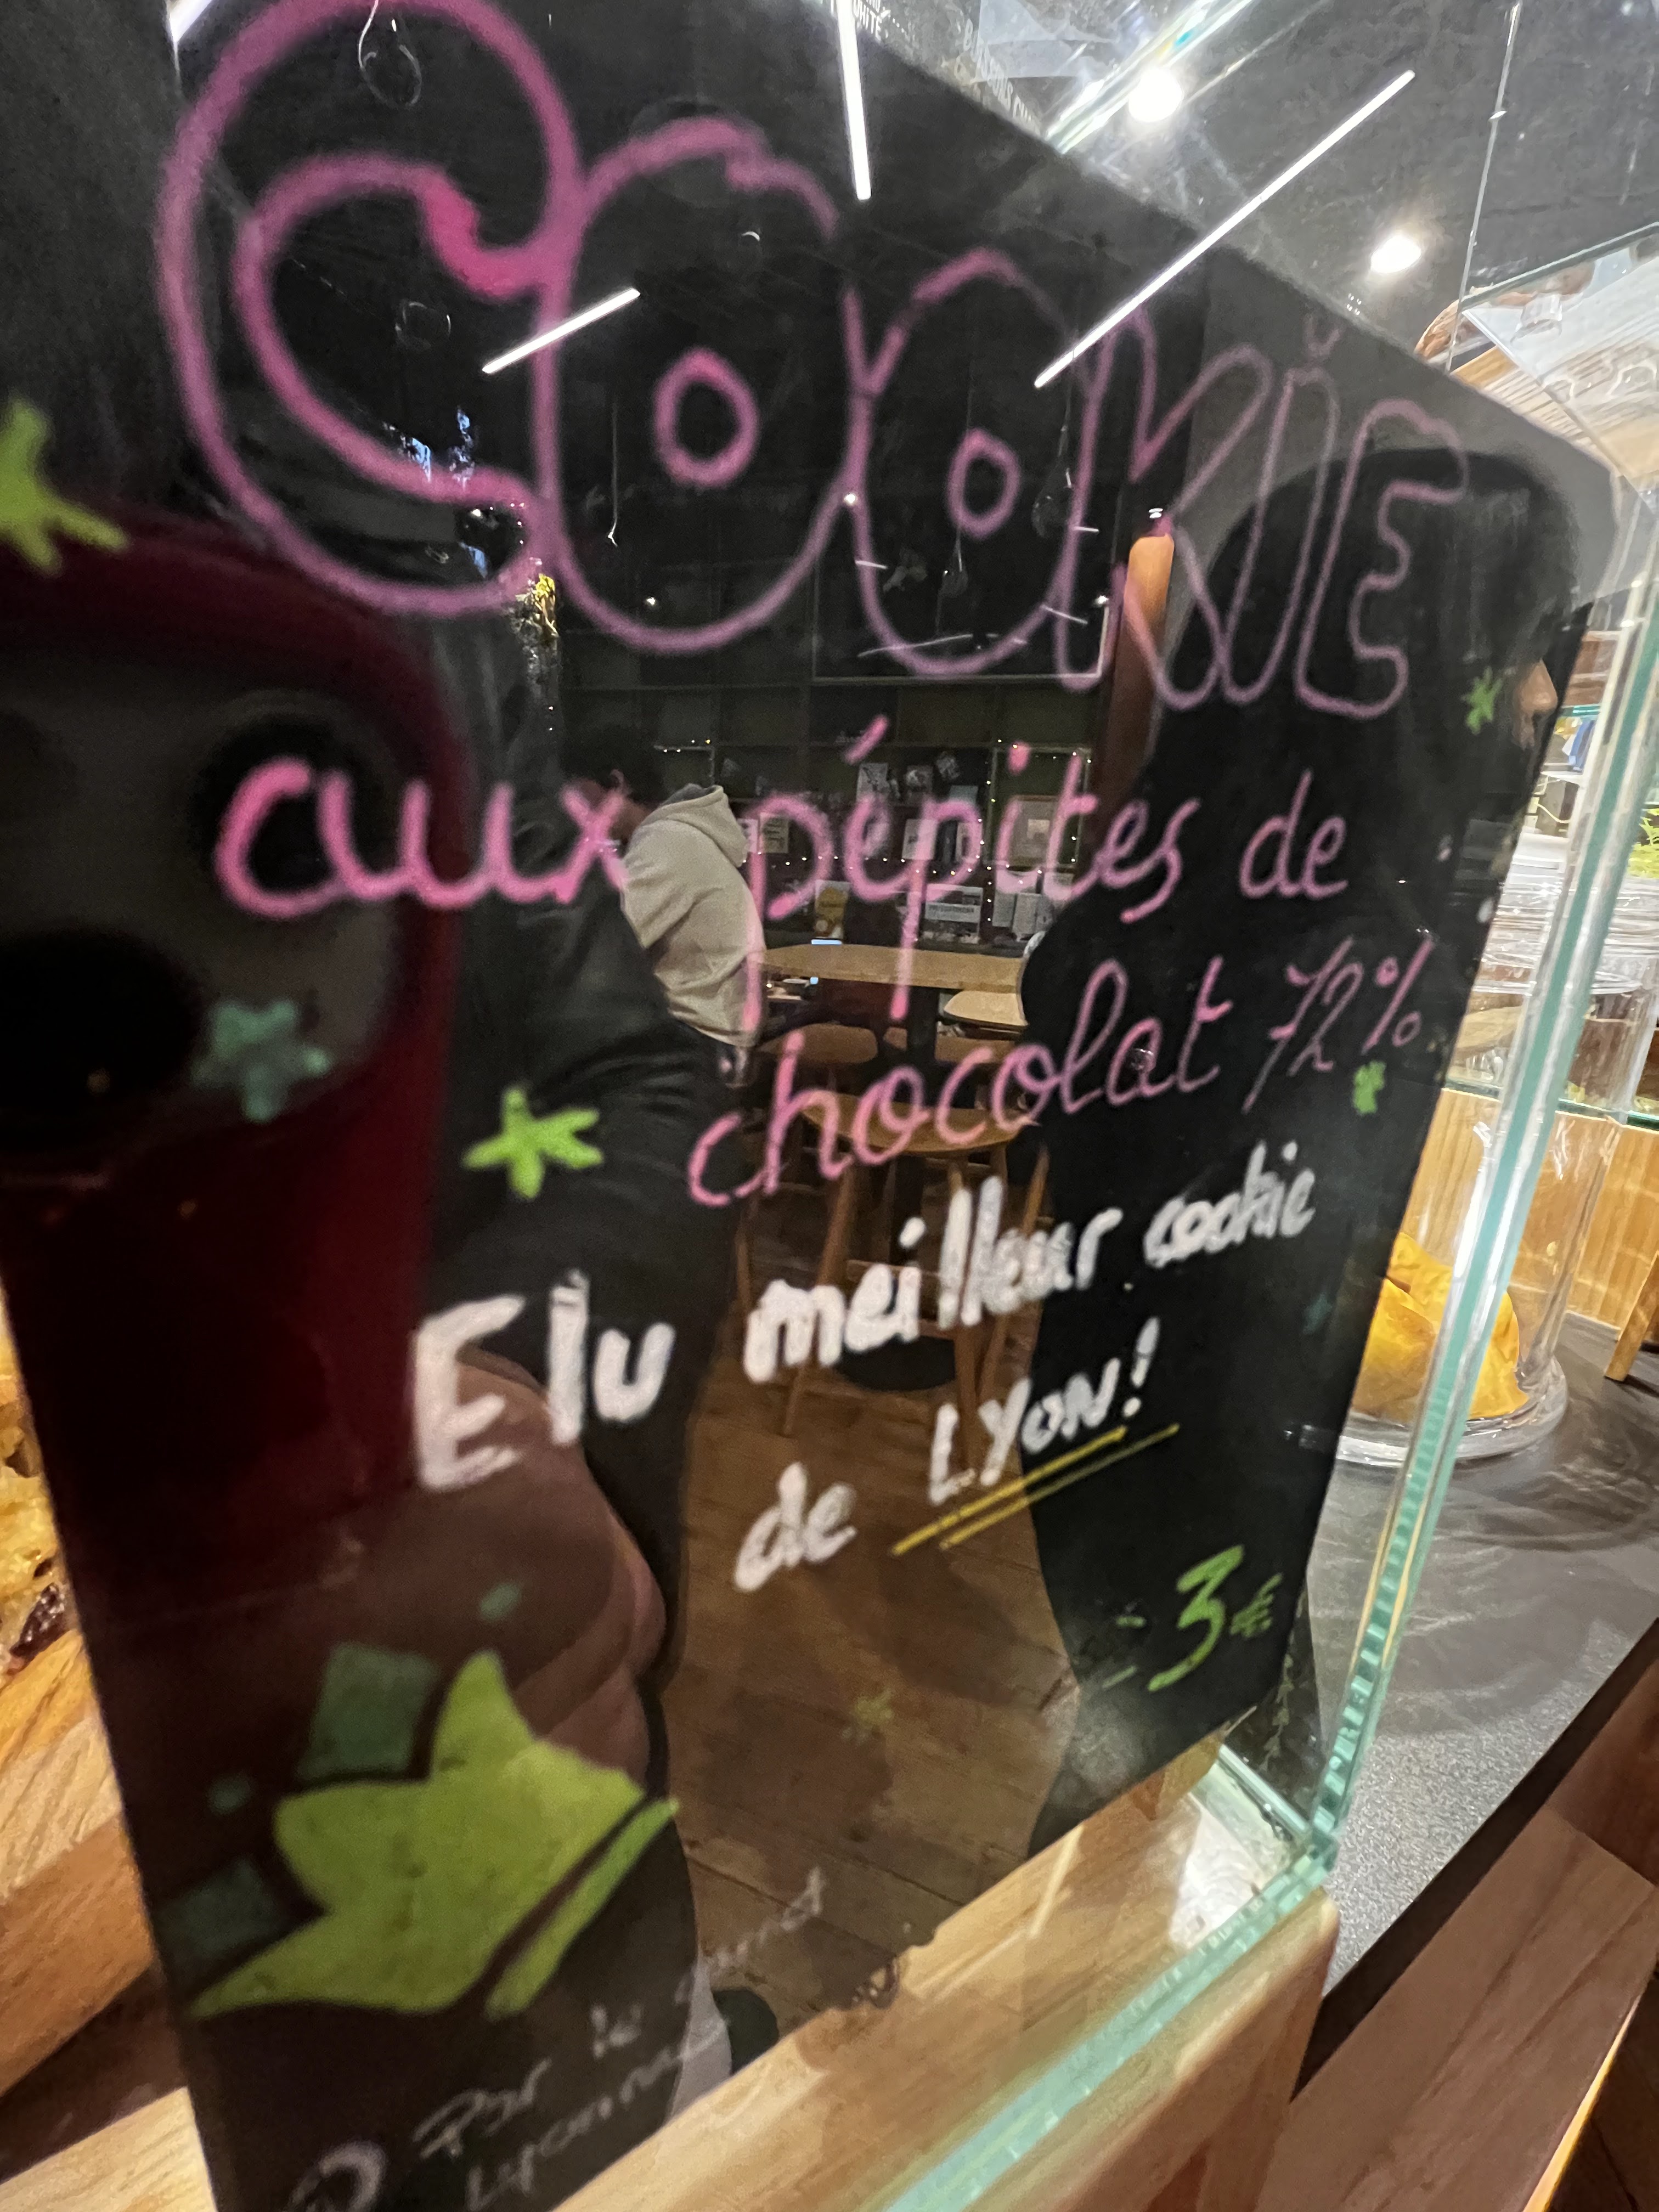 COOKIE
aux pépites de
chocolat 72%
Elu meilleur cookie
de LYON!
3€
Par le